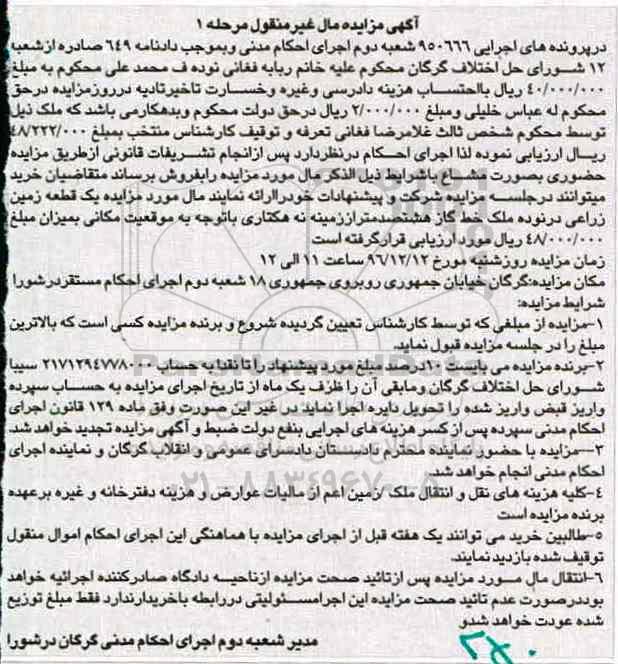 آگهی مزایده مال غیر منقول مرحله ۱
درپرونده های اجرایی ۹۵۰۶۶۶ شعبه دوم اجرای احکام مدنی وبموجب دادنامه ۶۴۹ صادره ازشعبه
۱۲ شورای حل اختلاف گرگان محکوم علیه خانم ربابه فغانی نوده ف محمد علی محکوم به مبلغ
۴۰/۰۰۰/۰۰۰ ریال بااحتساب هزینه دادرسی وغیره وخسارت تاخیرتادیه درروزمزایده درحق
محکوم له عباس خلیلی ومبلغ ۲/۰۰۰/۰۰۰ ریال درحق دولت محکوم وبدهکارمی باشد که ملک ذیل
توسط محکوم شخص ثالث غلامرضا فغانی تعرفه و توقیف کارشناس منتخب بمبلغ ۴۸/۲۲۲/۰۰۰
ریال ارزیابی نموده لذا اجرای احکام درنظردارد پس ازانجام تشریفات قانونی ازطریق مزایده
حضوری بصورت مشاع باشرایط ذیل الذکر مال مورد مزایده رابفروش برساند متقاضیان خرید
میتوانند درجلسه مزایده شرکت و پیشنهادات خودراارائه نمایند مال مورد مزایده یک قطعه زمین
زراعی درنوده ملک خط گاز هشتصدمتراززمینه نه هکتاری باتوجه به موقعیت مکانی بمیزان مبلغ
۴۸/۰۰۰/۰۰۰ ریال مورد ارزیابی قرارگرفته است
زمان مزایده روزشنبه مورخ ۹۶/۱۲/۱۲ ساعت ۱۱ الی ۱۲
مکان مزایده:گرگان خیابان جمهوری روبروی جمهوری ۱۸ شعبه دوم اجرای احکام مستقردرشورا
شرایط مزایده:
۱-مزایده از مبلغی که توسط کارشناس تعیین گردیده شروع و برنده مزایده کسی است که بالاترین
مبلغ را در جلسه مزایده قبول نماید.
۲-برنده مزایده می بایست ۱۰درصد مبلغ مورد پیشنهاد را تا نقدا به حساب ۲۱۷۱۲۹۴۷۷۸۰۰۰ سیبا
شورای حل اختلاف گرگان ومابقی آن را ظرف یک ماه از تاریخ اجرای مزایده به حساب سپرده
واریز قبض واریز شده را تحویل دایره اجرا نماید در غیر این صورت وفق ماده ۱۲۹ قانون اجرای
احکام مدنی سپرده پس از کسر هزینه های اجرایی بنفع دولت ضبط و آگهی مزایده تجدید خواهد شد
۳-مزایده با حضور نماینده محترم دادستان دادسرای عمومی و انقلاب گرگان و نماینده اجرای
احکام مدنی انجام خواهد شد
۴-کلیه هزینه های نقل و انتقال ملک /زمین اعم از مالیات عوارض و هزینه دفترخانه و غیره برعهده
برنده مزایده است
۵-طالبین خرید می توانند یک هفته قبل از اجرای مزایده با هماهنگی این اجرای احکام اموال منقول
توقیف شده بازدید نمایند.
۶-انتقال مال مورد مزایده پس ازتائید صحت مزایده ازناحیه دادگاه صادرکننده اجرائیه خواهد
بوددرصورت عدم تائید صحت مزایده این اجرامسئولیتی دررابطه باخریدارندارد فقط مبلغ توزیع
شده عودت خواهد شدو
مدیر شعبه دوم اجرای احکام مدنی گرگان درشورا
۰۲۱-۸۸۳۴۹۶۷۰-۵